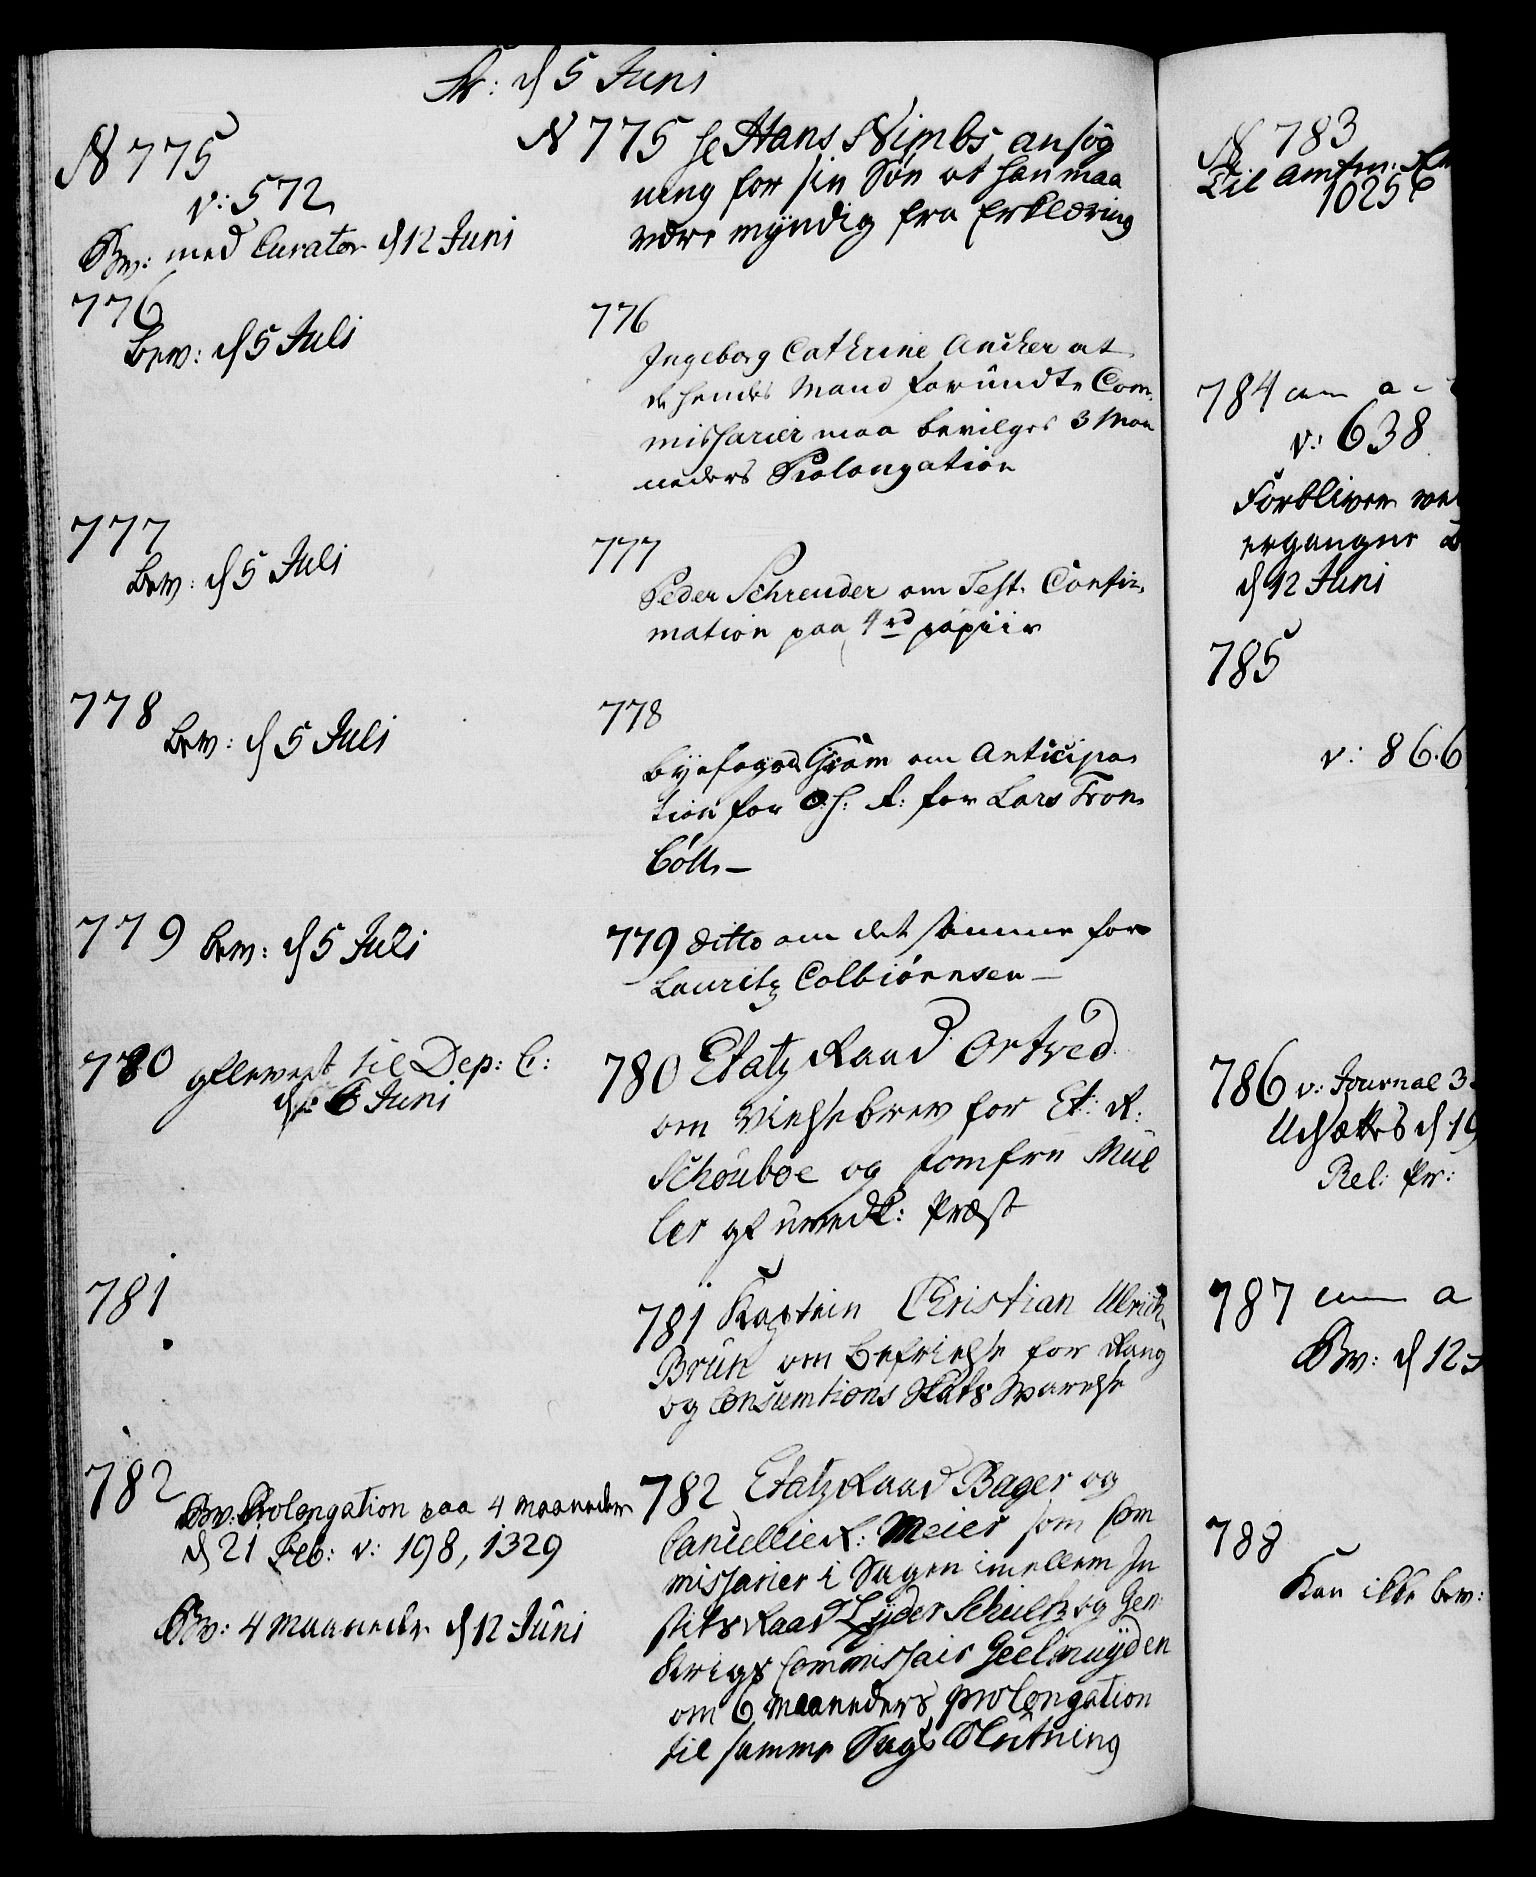 Fr: d 5 Juni
N 775
v: 572
Bw: med Curator d 12 Juni
N 775 Sr Hans Nimbs ansøg
ning for sin Søn at han maa
være myndig fra Erklæring
776
Bew: d 5 Juli
776
Ingeborg Cathrine Ancker at
de hendes Mand forundte Com-
missarier maa bevilges 3 Maa
neders Prolongation
777
Bew: d 5 Juli
777
Peder Schreuder om Test. Confir-
mation paa 4rd papiir
778
Bew: d 5 Juli
778
byefoged Gram om Anticipa-
tion for O. S. R: for Lars Tron-
bøll-
779 bew: d 5 Juli
779 ditto om det samme for
Lauritz Colbiørnsen-
780 afleveret til Dep: C:
d 6 Juni
780 Etatz Raad Ortved
om Vielsebrev for Et: R:
Schouboe og Jomfru Mül
ler af uvedk: Præst
781
781 Kaptein Christian Ulrich
Brun om befrielse for Rang
og Consumtions Skats Svarelse
782
Bw: Prolongation paa 4 maaneder
d 21 Feb: v: 198, 1329
Bw: 4 Maaneder d 12 Juni
782 Etatz Raad Bager og
Cancellie R: Meier som Com
missarier i Sagen imellem Ju
stits Raad Lyder Schultz og Gen:
Krigs Commissair Geelmuyden
om 6 Maaneders prolongation
til samme Sags Slutning
N 783
Til Amtm:
10256
784 cum a
v: 638
Forbliver ve
ergangne
d 12 Juni
785
v: 866
786 v: Journal 3
Udsættes d 19
Rel: Pr:
787 cum a
Bw: d 12
788
Kan ikke bew: